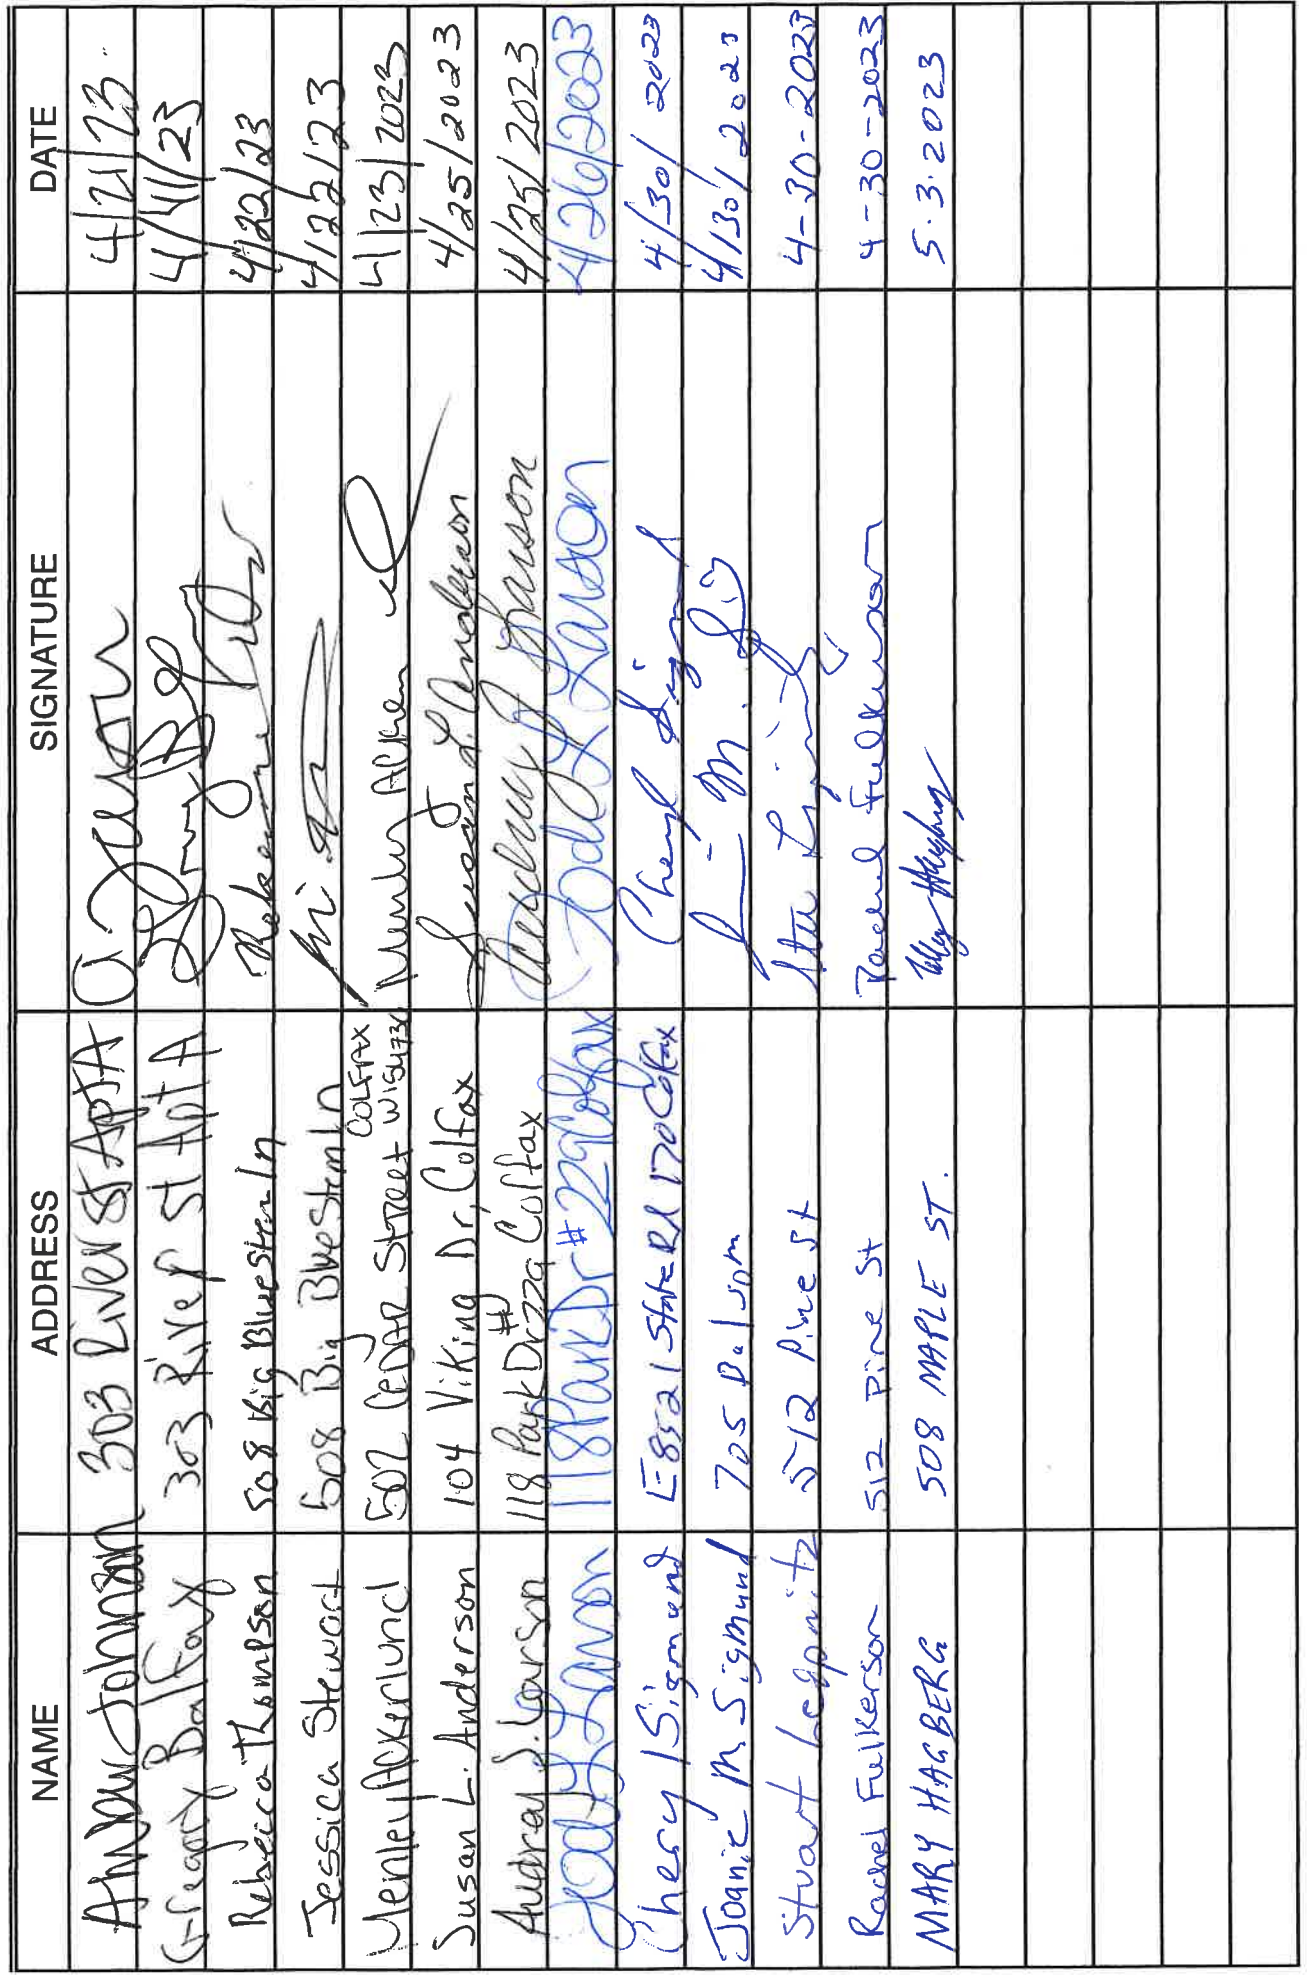 NAME ADDRESS SIGNATURE DATE
Andrew Johnson 303 River St Apt A A. Johnson 4/21/23
Gregory Balfay 303 River St Apt A 4/41/23
Rebecca Thompson 508 Big Bluestem ln 4/22/23
Jessica Stewart 508 Big Bluestem ln 4/22/23
Henley Ackerlund 502 CEDAR STREET COLFAX WI 54730 4/23/2023
Susan L. Anderson 104 Viking Dr, Colfax Susan L. Anderson 4/25/2023
Audrey J. Larson 118 Park Dr #229 Colfax Audrey J Larson 4/25/2023
Jody L Larson 118 Park Dr #229 Colfax Jody L Larson 4/26/2023
Cheryl Sigmund E8521 State Rd 170 Colfax Cheryl Sigmund 4/30/2023
Joanie M. Sigmund 705 Balsam 4/30/2023
Stuart 512 Pine St 4-30-2023
Rachel Fulkerson 512 Pine St Rachel Fulkerson 4-30-2023
MARY HAGBERG 508 MAPLE ST. Mary Hagberg 5.3.2023